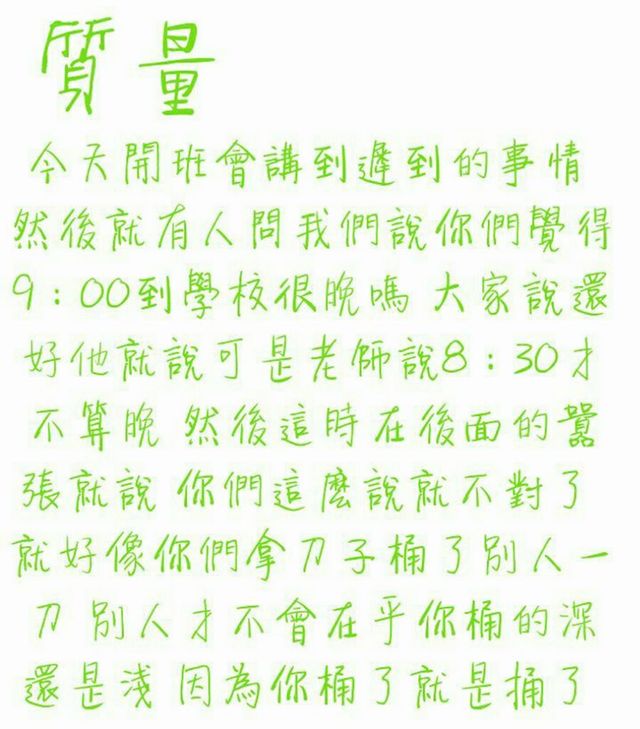 質量
今天開班會講到遲到的事情
然後就有人問我們說你們覺得
9:00到學校很晚嗎 大家說還
好他就說可是老師說8:30才
不算晚 然後這時在後面的囂
張就說 你們這麼說就不對了
就好像你們拿刀子桶了別人一
刀 別人才不會在乎你桶的深
還是淺 因為你桶了就是捅了